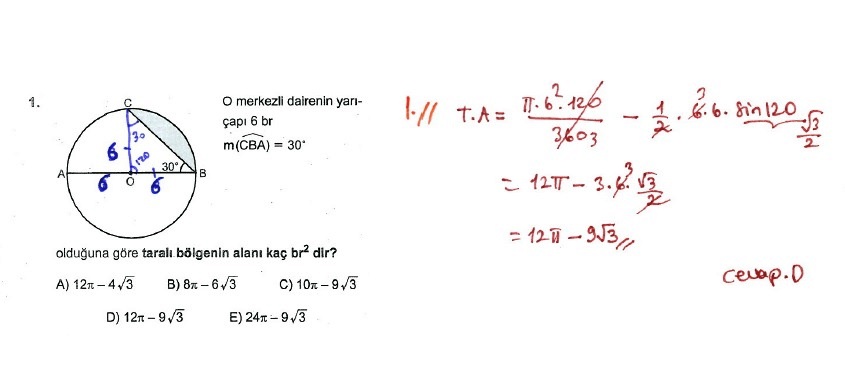 1.
C
A
O
B
30
120
30°
6
6
6
O merkezli dairenin yarı-
çapı 6 br
m(CBA) = 30°
olduğuna göre taralı bölgenin alanı kaç br² dir?
A) 12π – 4√3 B) 8π – 6√3 C) 10π – 9√3
D) 12π – 9√3 E) 24π – 9√3
1.//
T.A = π.6².120 / 360 3 – 1/2 . 6 3 . 6 . sin120 √3/2
= 12π – 3.6 3 . √3/2
= 12π – 9√3 //
cevap.D